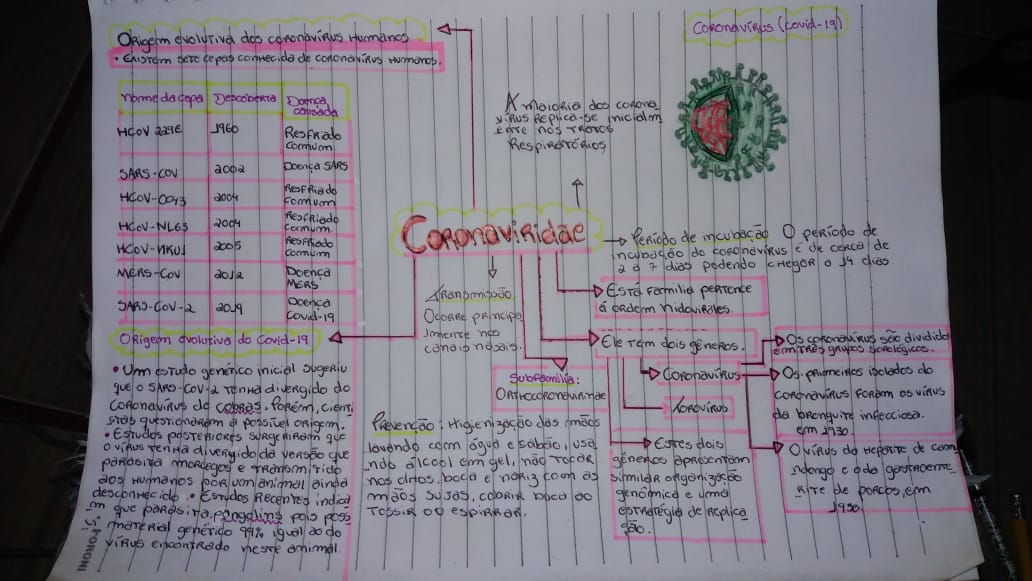 Coronavírus (covid-19)
Origem evolutiva dos coronavírus Humanos
• Existem sete cepas conhecida de coronavírus Humanos.
nome da cepa Descoberta Doença causada
HCoV 229E 1960 Resfriado commum
SARS-COV 2002 Doença SARS
HCoV-OC43 2004 Resfriado commum
HCoV-NL63 2004 Resfriado commum
HCoV-HKU1 2005 Resfriado commum
MERS-CoV 2012 Doença MERS
SARS-CoV-2 2019 Doença Covid-19
Origem evolutiva do Covid-19
• Um estudo genérico inicial sugeriu
que o SARS-COV-2 tenha divergido do
coronavírus de cobras. Porém, cienti
stas questionaram a possível origem.
• Estudos posteriores surgeriram que
o vírus tenha divergido da versão que
parasita morcegos e transmitido
aos Humanos por um animal ainda
desconhecido. • Estudos Recentes indica
m que parasita pangolins pois poss
material genérico 99% igual ao do
vírus encontrado neste animal.
A maioria dos corona
vírus Replica-se inicialm
ente nos tratos
Respiratórios
Coronaviridae
Período de incubação O período de
incubação do coronavírus é de cerca de
2 a 7 dias podendo chegar a 14 dias
Transmissão
Ocorre principa
lmente nos
canais nasais.
Está família pertence
á ordem nidovirales.
Ele tem dois gêneros.
Coronavírus
Torovírus
Subfamília:
Orthocoronavirinae
Os coronavírus são dividido
em três grupos sorológicos.
Os primeiros isolados do
coronavírus foram os vírus
da bronquite infecciosa.
em 1930.
O vírus da Hepatite de camu
ndongo e o da gastroente
rite de porcos, em
Estes dois
gêneros apresentam
similar organização
genômica e uma
estratégia de replica
ção.
Prevenção: Higienização das mãos
lavando com água e sabão, usa
ndo álcool em gel, não tocar
nos olhos, boca e nariz com as
mãos sujas, cobrir boca ao
tossir ou espirrar.